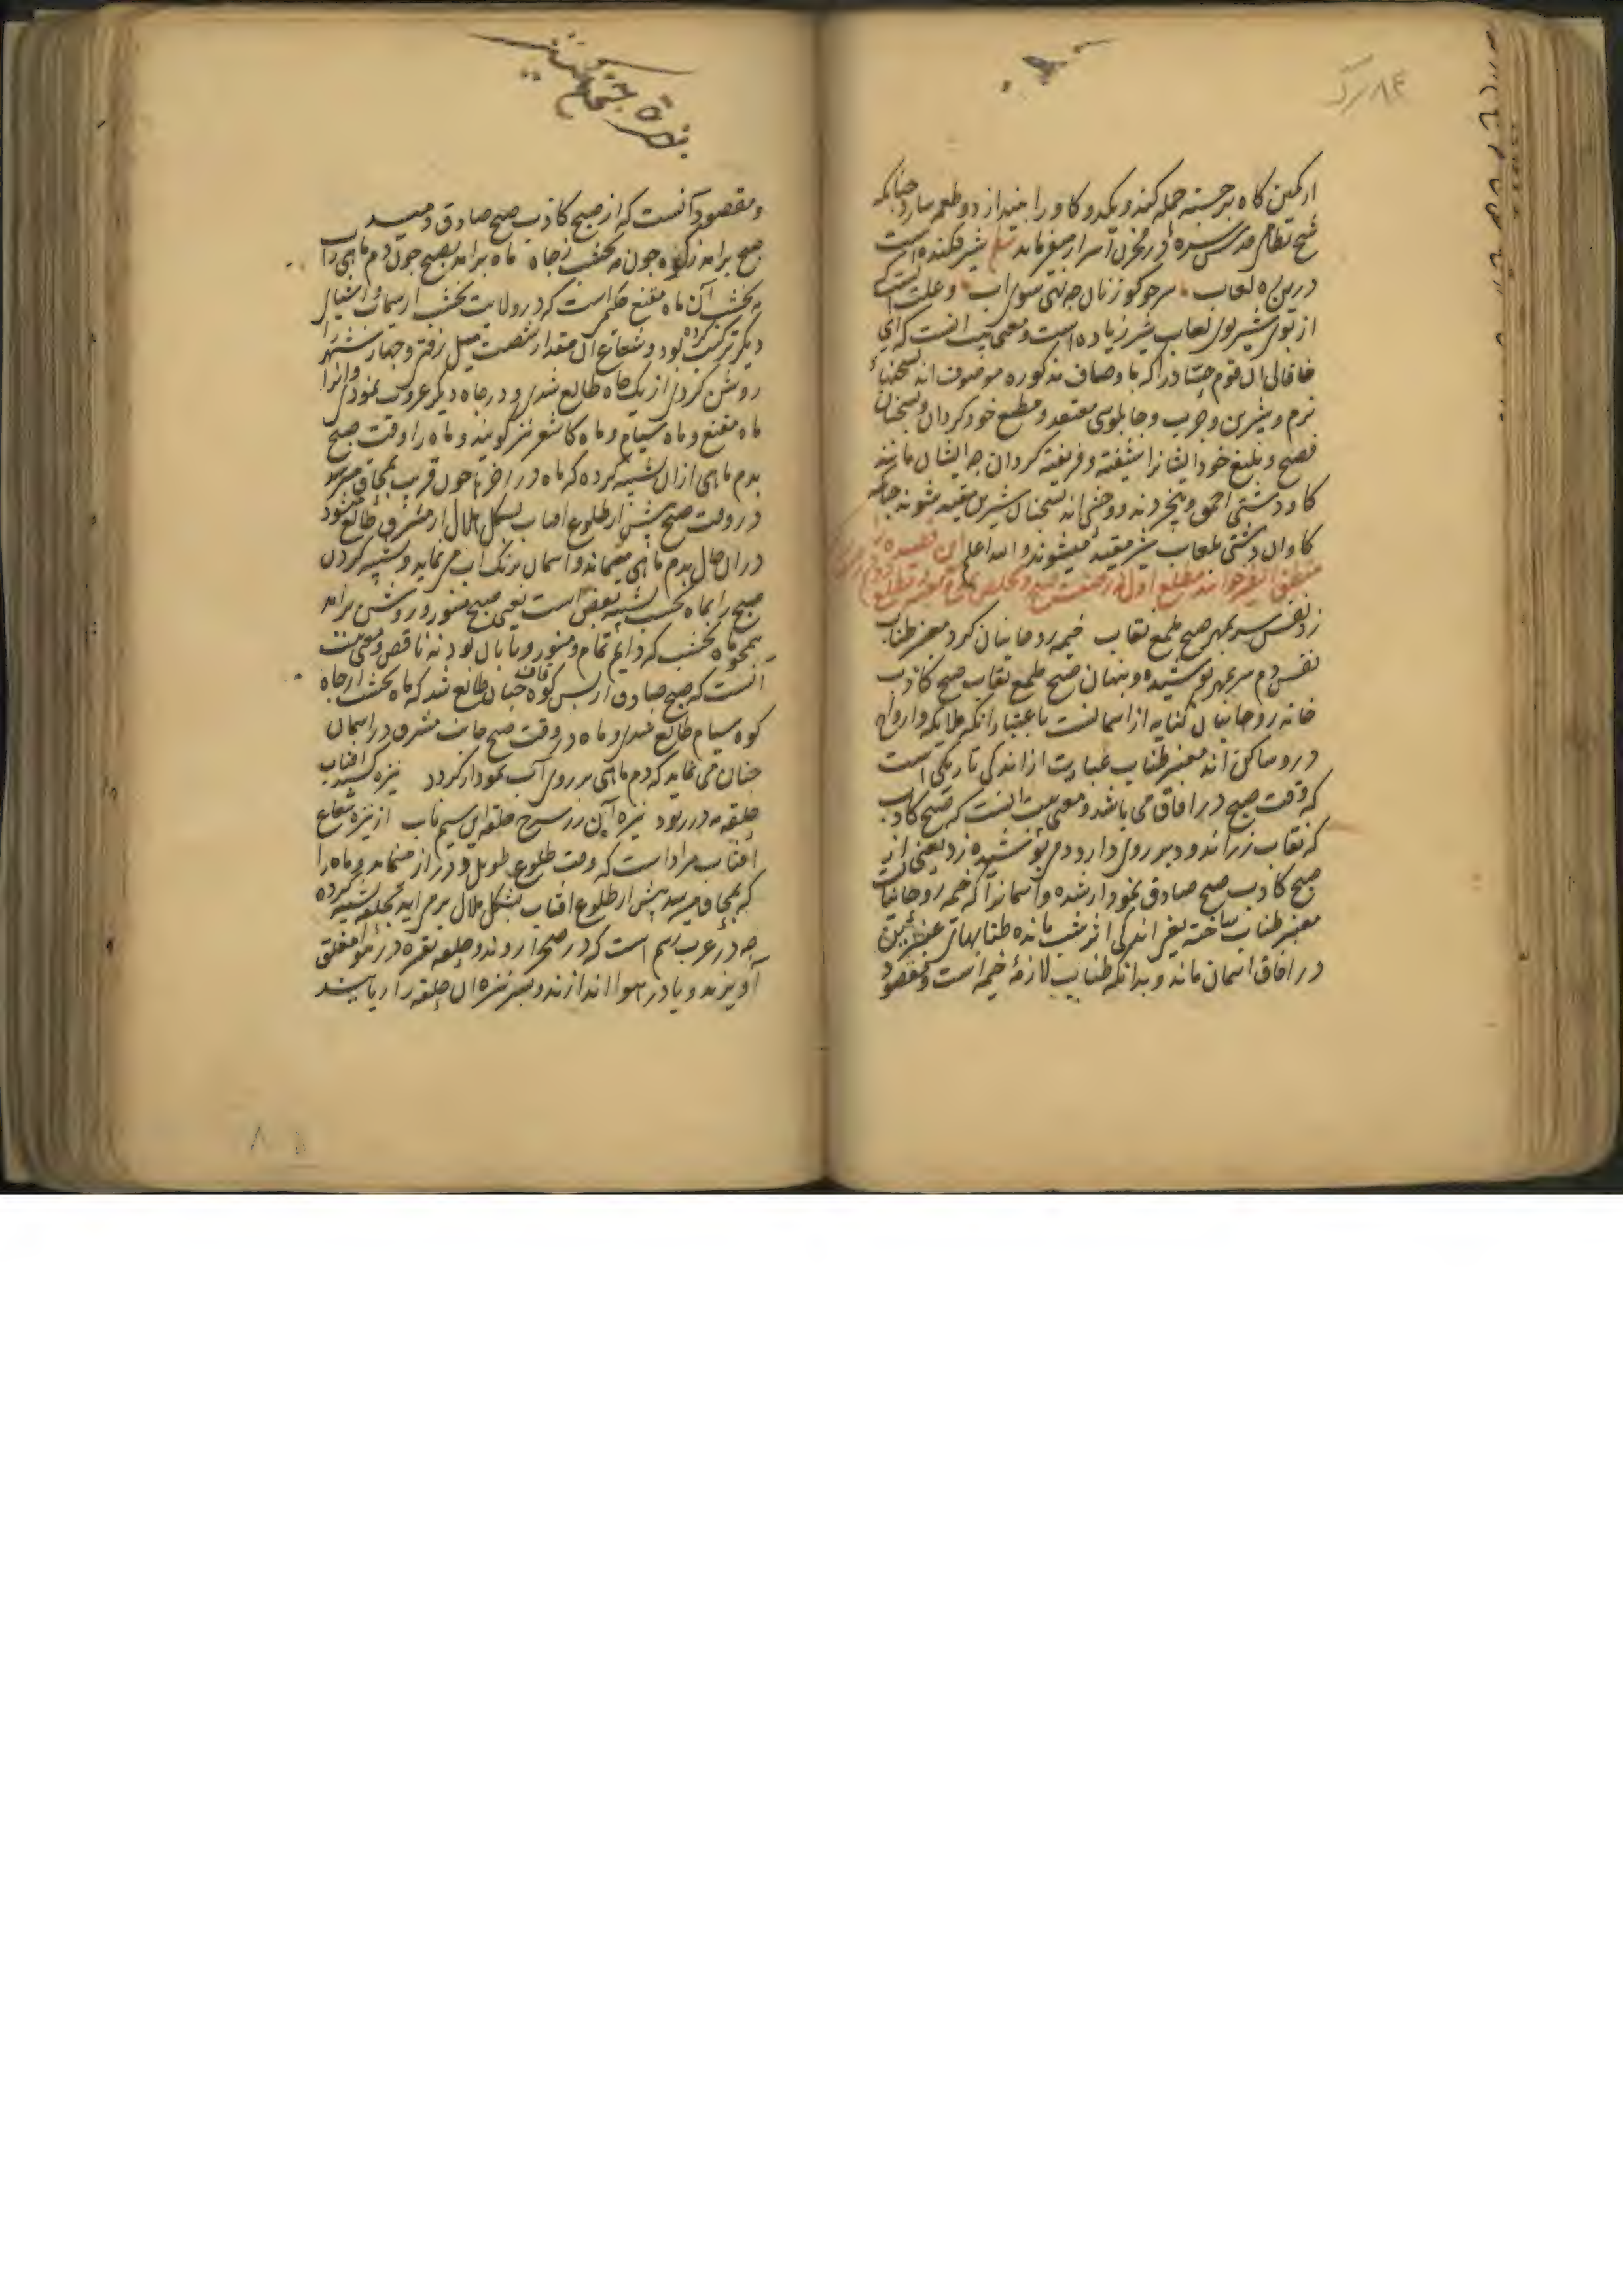 از کمین کاه برجسته حمله کند و بکدو کاو را بیندازد و طعمه سازد چنانکه
شیخ نظامی قدس سره در مخزن اسرار میفرماید شیر فکنده است
درین ره لعاب سر چو کوزنان چه نهی سوی آب و علت آنست که
از بوی شیر بوی لعاب شیر زیاده است و معنی بیت آنست که ای
خاقانی آن قوم را که باوصاف مذکوره موصوف اند بسخنهاء
نرم و شیرین و چرب و چابلوسی معتقد و مطیع خود کردان و بسخنان
فصیح و بلیغ خود ایشانرا شیفته و فریفته کردان چه ایشان مانند
کاو دشتی احمق و بیخردند و وحشی اند بسخنان شیرین مقید میشوند چنانچه
کاوان دشتی بلعاب شیر مقید میشوند والله اعلم این قصیده را
منطق الطیر خوانند مطلع اول در صفت صبح
زد نفس سر بمهر صبح ملمع نقاب خیمه روحانیان کرد معنبر طناب
نفس دم سر بمهر پوشیده و پنهان صبح ملمع نقاب صبح کاذب
خانه روحانیان کنایه از آسمانست باعتبار آنکه ملایکه و ارواح
درو ساکن اند معنبر طناب عبارت از اندکی تاریکی است
که وقت صبح در آفاق می باشد و معنی بیت آنست که صبح کاذب
که نقاب زر اندود بر روی دارد دم پوشیده زد یعنی از
صبح کاذب صبح صادق نمودار شده و آسمانرا که خیمه روحانیانست
معنبر طناب ساخته یعنی اندکی اثر شب مانده طنابهای عنبرین
در آفاق آسمان ماند و بدانکه طناب لازمهٔ خیمه است و مقصود
ومقصود آنست که از صبح کاذب صبح صادق دمید
صبح برآمد ز کوه چون مه نخشب ز چاه ماه برآمد بصبح چون دم ماهی ز آب
مه نخشب آن ماه مقنع حکیم است که در ولایت نخشب از سیماب و اشیای
دیگر ترکیب کرده بود و شعاع آن مقدار شصت میل رفتی و چهار شهر را
روشن کردی از یک چاه طالع شدی و در چاه دیگر غروب نمودی و آنرا
ماه مقنع و ماه سیام و ماه کاشغر نیز کویند و ماه را وقت صبح
بدم ماهی از آن تشبیه کرده که ماه در آخر ماه چون قریب بمحاق میرسد
در وقت صبح پیش از طلوع آفتاب بشکل هلال از مشرق طالع میشود
در آن حال بدم ماهی میماند و آسمان برنک آب می نماید و تشبیه کردن
صبح را بماه نخشب تشبیه بعض است یعنی صبح منور و روشن برآمد
همچو ماه نخشب که دایم تمام و منور و تابان بود نه ناقص و معنی بیت
آنست که صبح صادق از پس کوه قاف چنان طالع شد که ماه نخشب از چاه
کوه سیام طالع شدی و ماه در وقت صبح جانب مشرق در آسمان
چنان می نماید که دم ماهی بر روی آب نمودار کردد نیزه کشید آفتاب
حلقه مه در ربود نیزه این زر سرخ حلقه آن سیم ناب از نیزه شعاع
آفتاب مراد است که وقت طلوع طویل و دراز مینماید و ماه را
که بمحاق میرسد پیش از طلوع آفتاب بشکل هلال برمی آید بحلقه تشبیه کرده
چه در عرب رسم است که در صحرا روند و حلقه نقره در هوا معلق
آویزند و یا در هوا اندازند و بسر نیزه آن حلقه را ربایند